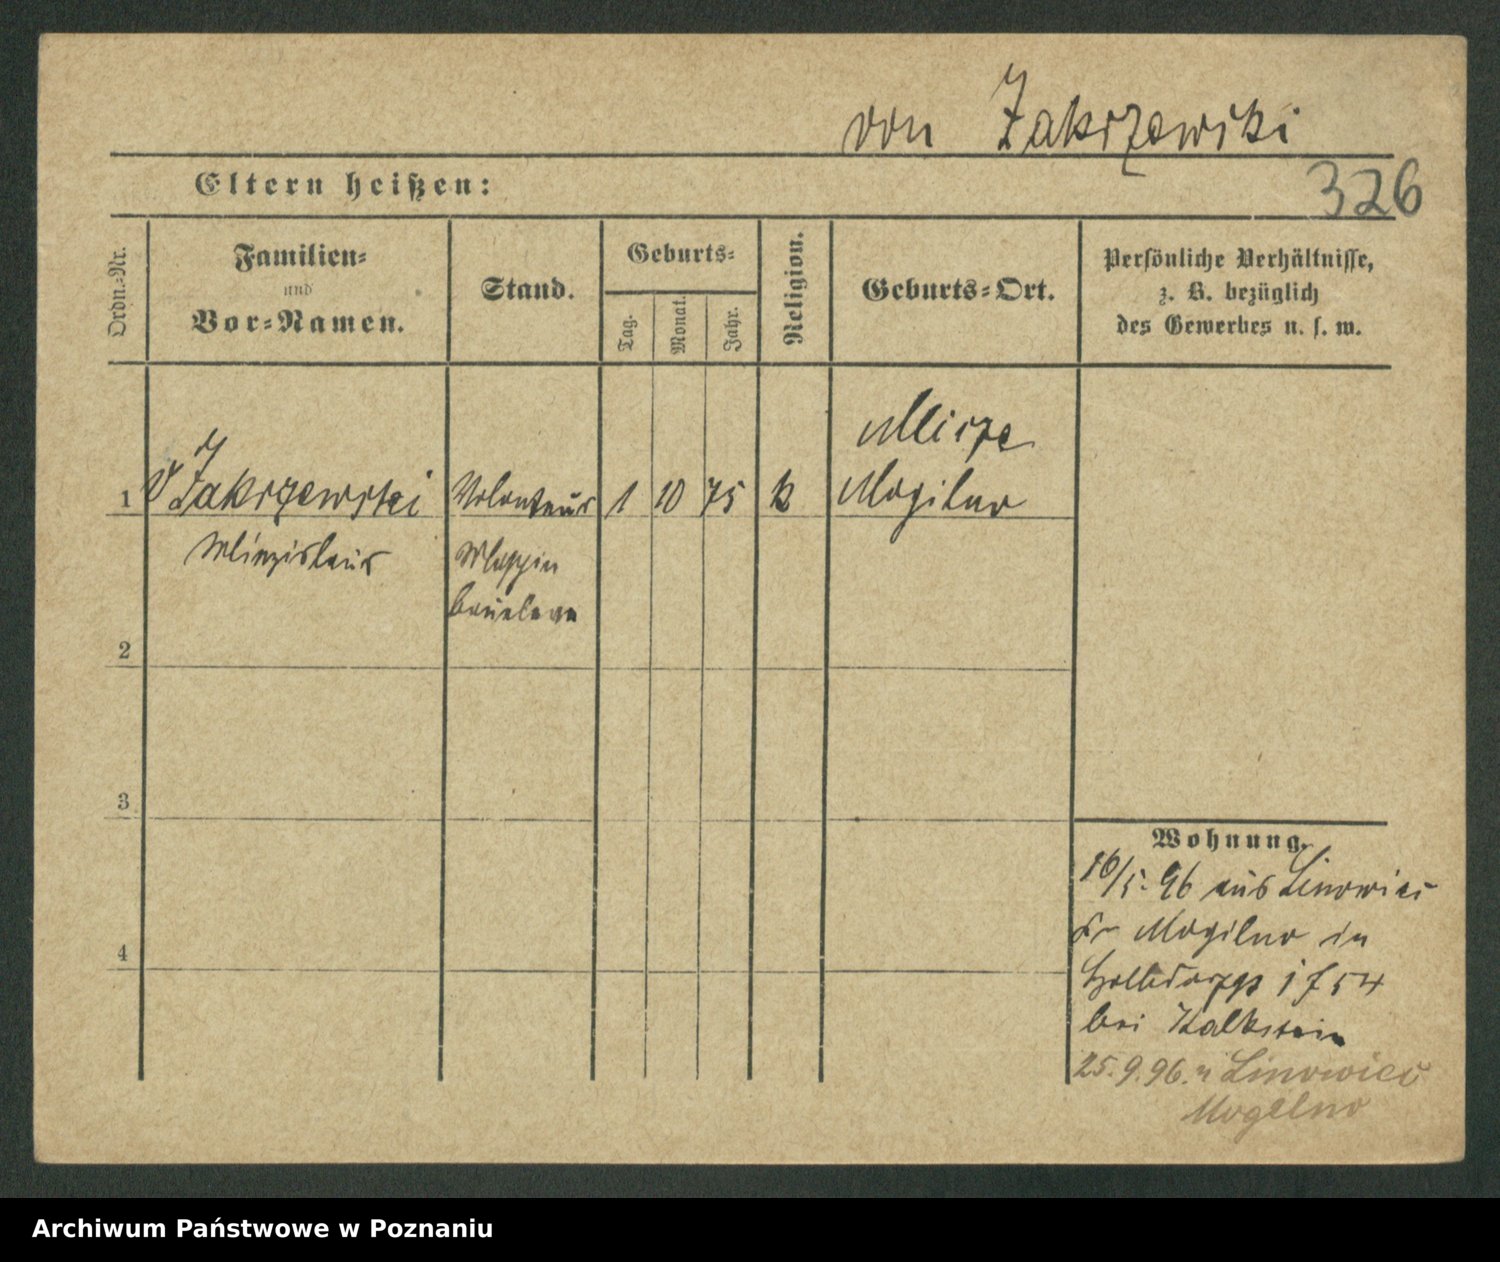 von Zakrzewski
Eltern heißen:
326
Ordn.-Nr.
Familien-
und
Vor-Namen.
Stand.
Geburts-
Tag.
Monat.
Jahr.
Religion.
Geburts-Ort.
Persönliche Verhältnisse,
z. B. bezüglich
des Gewerbes u. s. w.
1
v Zakrzewski
Volonteur
1
10
75
k
Mogilno
2
3
4
Wohnung.
16/5. 96 aus Linowiec
Kr Mogilno in
1754
bei Kalkstein
25.9.96. n Linowiec
Mogilno
Archiwum Państwowe w Poznaniu